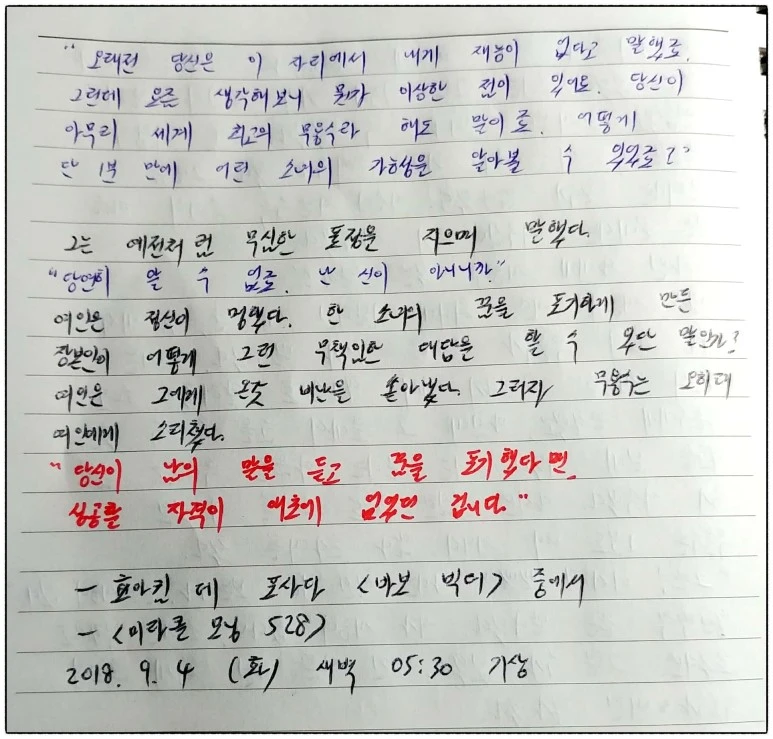 "오래전 당신은 이 자리에서 내게 재능이 없다고 말했죠.
그런데 요즘 생각해보니 뭔가 이상한 점이 있어요. 당신이
아무리 세계 최고의 무용수라 해도 말이죠. 어떻게
단 1분 만에 어린 소녀의 가능성을 알아볼 수 있었죠?"
그는 예전처럼 무심한 표정을 지으며 말했다.
"당연히 알 수 없죠. 난 신이 아니니까."
여인은 정신이 멍했다. 한 소녀의 꿈을 포기하게 만든
장본인이 어떻게 그런 무책임한 대답을 할 수 있단 말인가?
여인은 그에게 온갖 비난을 쏟아냈다. 그러자 무용수는 오히려
여인에게 소리쳤다.
"당신이 남의 말을 듣고 꿈을 포기했다면,
성공할 자격이 애초에 없었던 겁니다."
- 호아킴 데 포사다 <바보 빅터> 중에서
- <미라클 모닝 528>
2018. 9. 4 (화) 새벽 05:30 기상